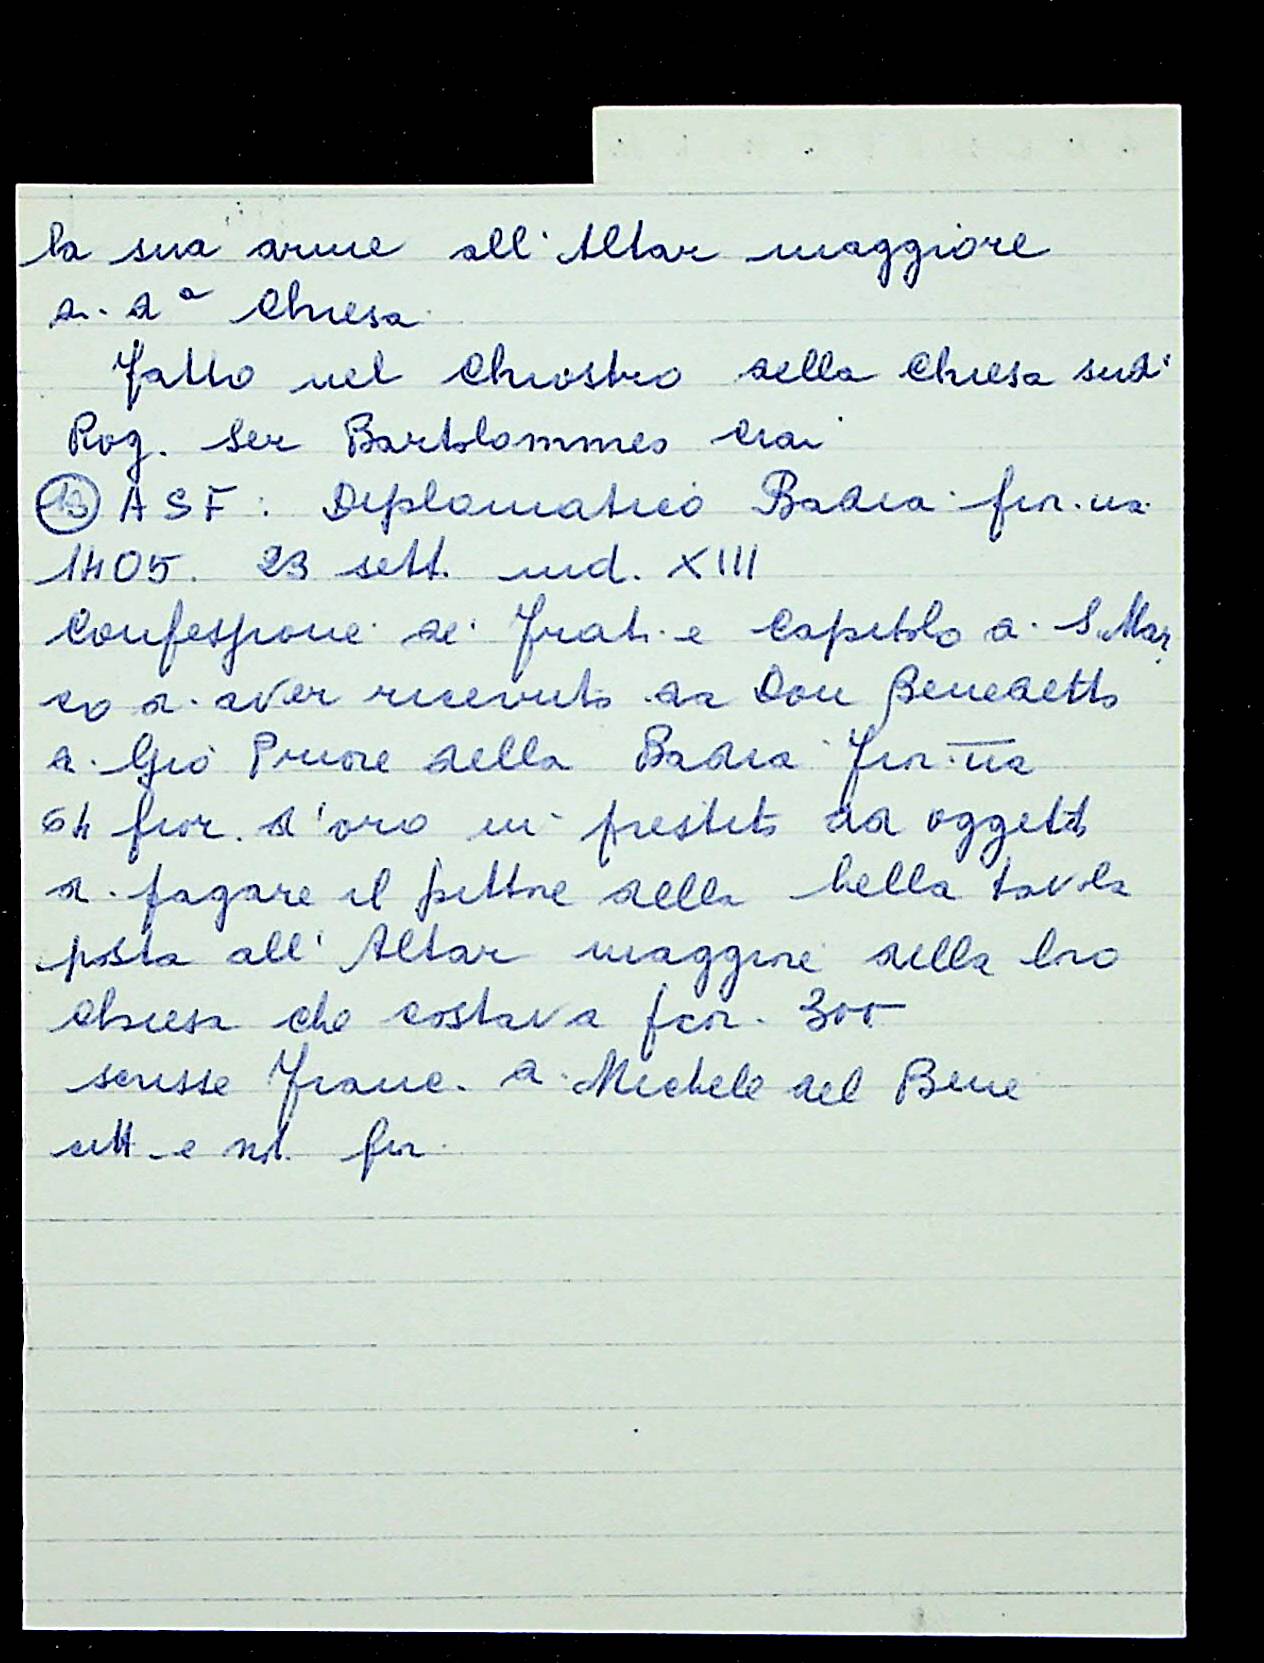 la sua arme all'Altar maggiore
di dª Chiesa
Fatto nel Chiostro della Chiesa sudª
Rog. Ser Bartolommeo
13 ASF: Diplomatico Badia fior.na
1405. 23 sett. ind. XIII
Confessione de' Frati e Capitolo di S. Mar
co di aver ricevuto da Don Benedetto
di Gio Priore della Badia Fior.na
64 fior. d'oro in prestito ad oggetto
di pagare il pittore della bella tavola
posta all'Altar maggiore della loro
Chiesa che costava fior. 300
scrisse Franc. di Michele del Bene
citt. e not. fior.